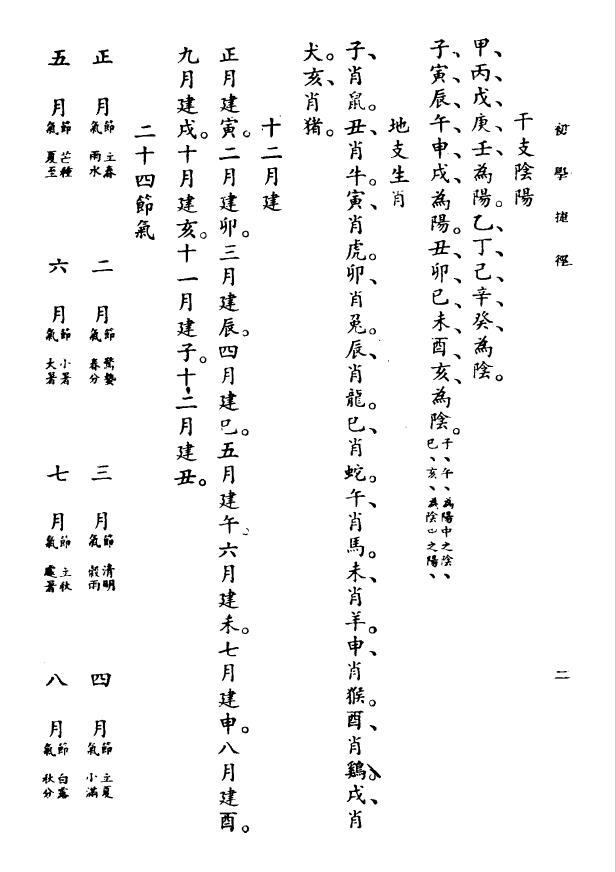 初學捷徑 二
干支陰陽
甲、丙、戊、庚、壬、為陽。乙、丁、己、辛、癸、為陰。
子、寅、辰、午、申、戌、為陽。丑、卯、巳、未、酉、亥、為陰。子、午、為陽中之陰、巳、亥、為陰中之陽、
地支生肖
子、肖鼠。丑、肖牛。寅、肖虎。卯、肖兔。辰、肖龍。巳、肖蛇。午、肖馬。未、肖羊。申、肖猴。酉、肖鷄。戌、肖
犬。亥、肖猪。
十二月建
正月建寅。二月建卯。三月建辰。四月建巳。五月建午。六月建未。七月建申。八月建酉。
九月建戌。十月建亥。十一月建子。十二月建丑。
二十四節氣
正月 節 立春 氣 雨水 二月 節 驚蟄 氣 春分 三月 節 清明 氣 穀雨 四月 節 立夏 氣 小滿
五月 節 芒種 氣 夏至 六月 節 小暑 氣 大暑 七月 節 立秋 氣 處暑 八月 節 白露 氣 秋分